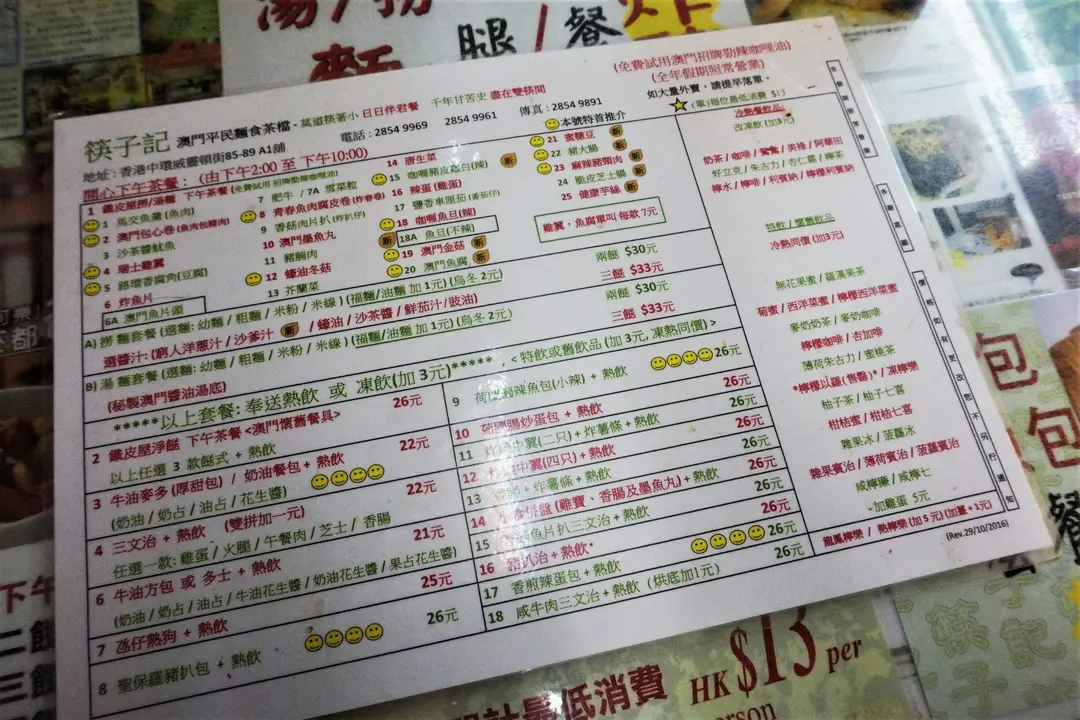 湯/撈
麵 腿/餐 炸
筷子記 澳門平民麵食茶檔 - 莫道筷著小 日日伴君餐 千年甘苦史 盡在雙筷間
(免費試用澳門招牌勁辣咖喱油)
(全年假期照常營業)
地址:香港中環威靈頓街85-89 A1舖 電話:2854 9969 2854 9961 傳真:2854 9891
如大量外賣,請提早落單。
開心下午茶餐:(由下午2:00 至 下午10:00)
1 鐵皮屋撈/湯麵 下午茶餐 (免費試用 招牌勁辣咖喱油)
1 馬交魚羹 (魚肉)
2 澳門包心卷 (魚肉包豬肉)
3 沙茶醬魷魚
4 瑞士雞翼
5 路環香腐角(豆腐)
6 炸魚片
6A 澳門魚片頭
7 肥牛 / 7A 雪菜粒
8 青春魚肉腐皮卷 (炸春卷)
9 香菇肉片扒 (炸扒仔)
10 澳門墨魚丸
11 豬腩肉
12 蠔油冬菇
13 芥蘭菜
14 唐生菜
15 咖喱豬皮蘿白(辣) 新
16 辣蛋 (雞蛋)
17 鹽香車厘茄 (番茄仔)
18 咖喱魚旦(辣)
18A 魚旦(不辣)
新 19 澳門金菇 新
20 澳門魚腐 新
本號特首推介
21 蜜糖豆 新
22 豬大腸
23 麻辣豬頸肉 新
24 脆皮芝士腸
25 健康芋絲 新
雞翼,魚腐單叫 每款7元
A) 撈 麵套餐 (選麵: 幼麵 / 粗麵 / 米粉 / 米線 ) (福麵/油麵 加 1元) (烏冬 2元) 兩餸 $30元
選醬汁: (窮人洋蔥汁 / 沙爹汁 新 / 蠔油 / 沙茶醬 / 鮮茄汁 / 豉油) 三餸 $33元
B) 湯 麵套餐 (選麵: 幼麵 / 粗麵 / 米粉 / 米線 ) (福麵/油麵 加 1元) (烏冬 2元) 兩餸 $30元
(秘製澳門醬油湯底) 三餸 $33元
*****以上套餐: 奉送熱飲 或 凍飲(加 3元)*****, < 特飲或舊飲品 (加 3元, 凍熱同價) >
2 鐵皮屋淨餸 下午茶餐 <澳門懷舊餐具> 26元
以上任選 3 款餸式 + 熱飲
3 牛油麥多 (厚甜包) / 奶油餐包 + 熱飲 22元
(奶油 / 奶占 / 油占 / 花生醬)
4 三文治 + 熱飲 (雙拼加一元) 22元
任選一款: 雞蛋 / 火腿 / 午餐肉 / 芝士 / 香腸
6 牛油方包 或 多士 + 熱飲 21元
(奶油 / 奶占 / 油占 / 牛油花生醬 / 奶油花生醬 / 果占花生醬)
7 氹仔熱狗 + 熱飲 25元
8 聖保羅豬扒包 + 熱飲 26元
9 荷 辣魚包(小辣) + 熱飲 26元
10 荷國腸炒蛋包 + 熱飲 26元
11 中翼(二只) + 炸薯條 + 熱飲 26元
12 中翼(四只) + 熱飲 26元
13 + 炸薯條 + 熱飲 26元
14 食併盤 (雞寶、香腸及墨魚丸) + 熱飲 26元
15 魚片扒三文治 + 熱飲 26元
16 豬扒治 + 熱飲 26元
17 香煎辣蛋包 + 熱飲 26元
18 咸牛肉三文治 + 熱飲 (烘底加1元) 26元
(單)每位最低消費 $13
冷熱餐飲品:
改凍飲 (加3元)
奶茶 / 咖啡 / 鴛鴦 / 美祿 / 阿華田
好立克 / 朱古力 / 杏仁霜 / 檸茶
檸水 / 檸啡 / 利賓納 / 檸檬利賓納
特飲 / 懷舊飲品
冷熱同價 (加3元)
無花果蜜 / 羅漢果茶
菊蜜 / 西洋菜蜜 / 檸檬西洋菜蜜
麥奶奶茶 / 麥奶咖啡
檸檬咖啡 / 杏加啡
薄荷朱古力 / 蜜桃茶
*檸檬以羅(售罄)* / 凍檸樂
柚子茶 / 柚子七喜
柑桔蜜 / 柑桔七喜
雜果冰 / 菠蘿冰
雜果賓治 / 薄荷賓治 / 菠蘿賓治
咸檸樂 / 咸檸七
加雞蛋 5元
龍鳳檸樂 / 熱檸樂 (加 5 元) (加薑 + 1元)
(Rev.29/10/2016)
價格如有更改恕不另行通知
最低消費 HK $13 per
下午
二餸
三餸
包
包
餐
筷
子
記